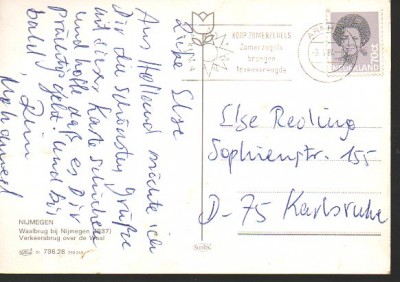 Liebe Else
Aus Holland möchte ich
Dir die schönsten Grüße
mit dieser Karte schicken
und hoffe daß es Dir
prächtig geht und bis
bald,
Dein
Mohammed
NIJMEGEN
Waalbrug bij Nijmegen (1937)
Verkeersbrug over de Waal
KOOP ZOMERZEGELS
Zomerzegels
brengen
levensvreugde
NEDERLAND
70ct
Else Redling
Sophienstr. 155
D-75 Karlsruhe